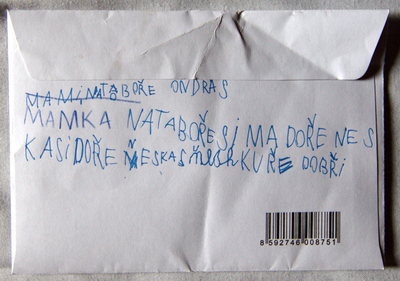 MAMI NATABOŘE ONDRAS
MAMKA NATABOŘESI MA DOŘE NES
KASIDOŘE
KUŘE DOBŘI
8 592746 008751